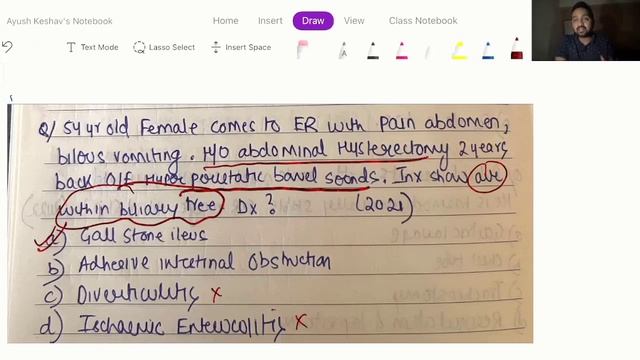 Ayush Keshav's Notebook
Home Insert Draw View Class Notebook
Text Mode Lasso Select Insert Space
Q/ 54 yr old Female comes to ER with Pain abdomen,
bilous vomiting. H/O abdominal Hysterectomy 2 years
back O/E Hyper peristatic bowel sounds. Inx show air
within biliary tree Dx? (2021)
a) Gall stone ileus
b) Adhesive intestinal Obstruction
c) Diverticulitis x
d) Ischaemic Enterocolitis x